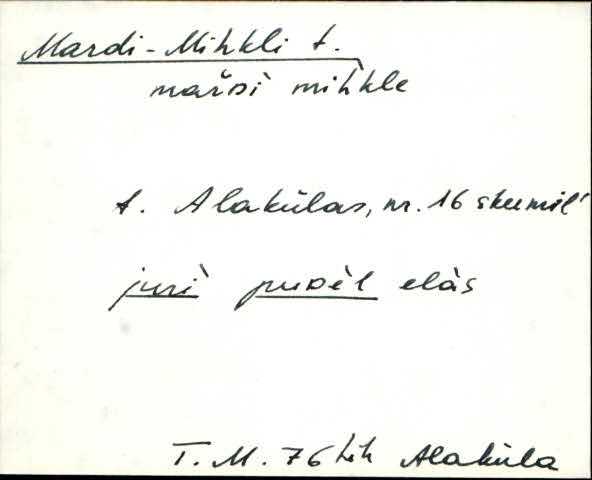 Mardi-Mihkli t.
marᴅi mihkle
t. Alakülas, nr. 16 skeemil
jurì puᴅèl elàs
T. M. 76 Lih Alaküla